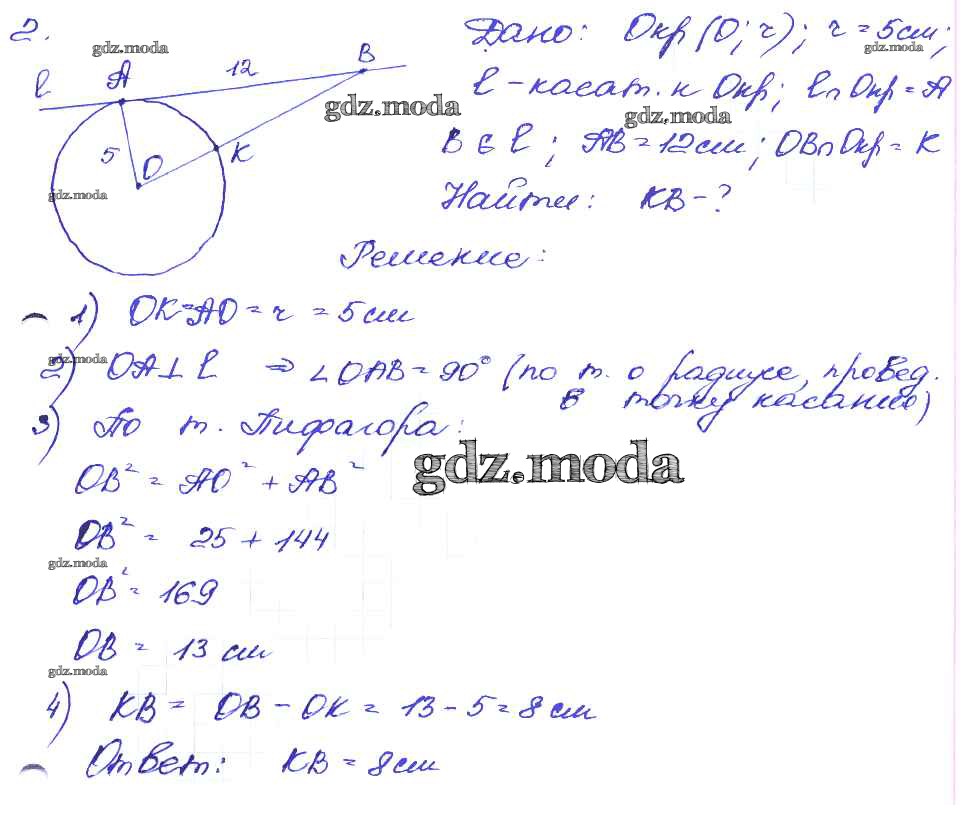 2.
gdz.moda
Дано: Окр(О; r); r = 5см;
gdz.moda
l A 12 B
l - касат. к Окр; l∩Окр = А
gdz.moda
gdz.moda
5 O K
B ∈ l; AB = 12см; OB∩Окр = K
gdz.moda
Найти: KB - ?
Решение:
1) OK = AO = r = 5см
gdz.moda
2) OA⊥l ⇒ ∠OAB = 90° (по т. о радиусе, провед.
в точку касания)
3) По т. Пифагора:
gdz.moda
OB² = AO² + AB²
OB² = 25 + 144
gdz.moda
OB² = 169
OB = 13 см
gdz.moda
4) KB = OB - OK = 13 - 5 = 8 см
Ответ: KB = 8см